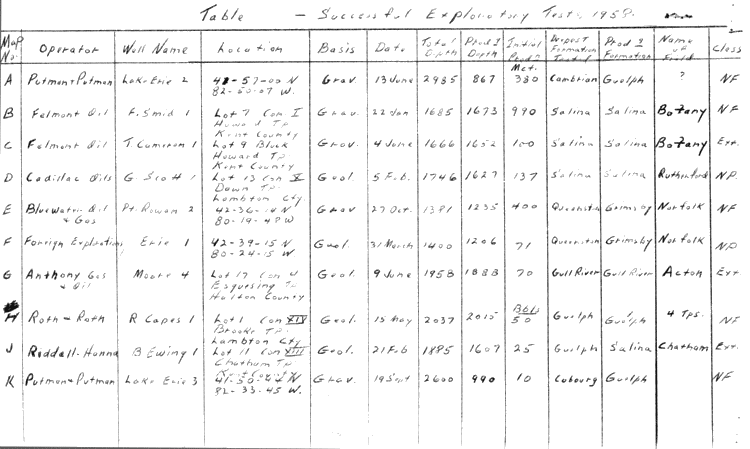 Table — Successful Exploratory Tests, 1958.
Map No. Operator Well Name Location Basis Date Total Depth Prod'g Depth Initial Prod'n Deepest Formation Tested Prod'g Formation Name of Field Class
Mcf.
A Putman & Putman Lake Erie 2 41-57-00 N Grav. 13 June 2985 867 380 Cambrian Guelph ? NF
82-50-07 W.
B Felmont Oil F. Smid 1 Lot 7 Con I Grav. 22 Jan 1685 1673 990 Salina Salina Botany NF
Howard Tp.
Kent County
C Felmont Oil T. Cameron 1 Lot 9 Block Grav. 4 June 1666 1652 100 Salina Salina Botany Ext.
Howard Tp.
Kent County
D Cadillac Oils G. Scott 1 Lot 13 Con X Geol. 5 Feb. 1746 1627 137 Salina Salina Rutherford NP.
Dawn Tp.
Lambton Cty
E Bluewater Oil & Gas Pt. Rowan 2 42-36-14 N Grav 27 Oct. 1381 1235 400 Queenston Grimsby Norfolk NF
80-19-48 W
F Foreign Exploration Erie 1 42-39-15 N Geol. 31 March 1400 1206 71 Queenston Grimsby Norfolk NP
80-24-15 W
G Anthony Gas & Oil Moore 4 Lot 17 Con Geol. 9 June 1958 1888 70 Gull River Gull River Acton Ext
Esquesing Tp
Halton County
Bbls
H Roth - Roth R Capes 1 Lot 1 Con XIV Geol. 15 May 2037 2015 50 Guelph Guelph 4 Tps. NF
Brooke Tp.
Lambton Cty
J Riddall-Hanna B Ewing 1 Lot 11 Con XIII Geol. 21 Feb 1885 1607 25 Guelph Salina Chatham Ext.
Chatham Tp.
Kent County
K Putman & Putman Lake Erie 3 41-50-47 N Grav. 19 Sept 2600 990 10 Cabourg Guelph NF
82-33-45 W.